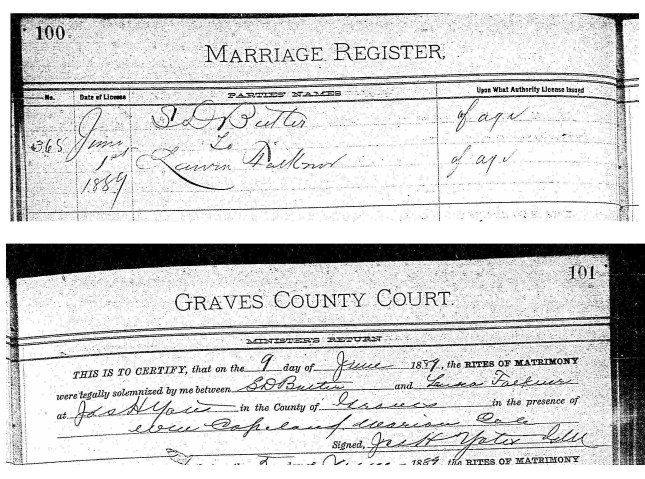 100
MARRIAGE REGISTER,
No. Date of License PARTIES NAMES Upon What Authority License Issued
365 June 1st 1889 S D Butler of age
To
Falkner of age
101
GRAVES COUNTY COURT.
MINISTER'S RETURN
THIS IS TO CERTIFY, that on the 9 day of June 1889, the RITES OF MATRIMONY
were legally solemnized by me between S D Butler and Falkner
at Jas H Yates in the County of Graves in the presence of
Copeland Marion Cole
Signed, Jas H Yates
day of 1889 the RITES OF MATRIMONY